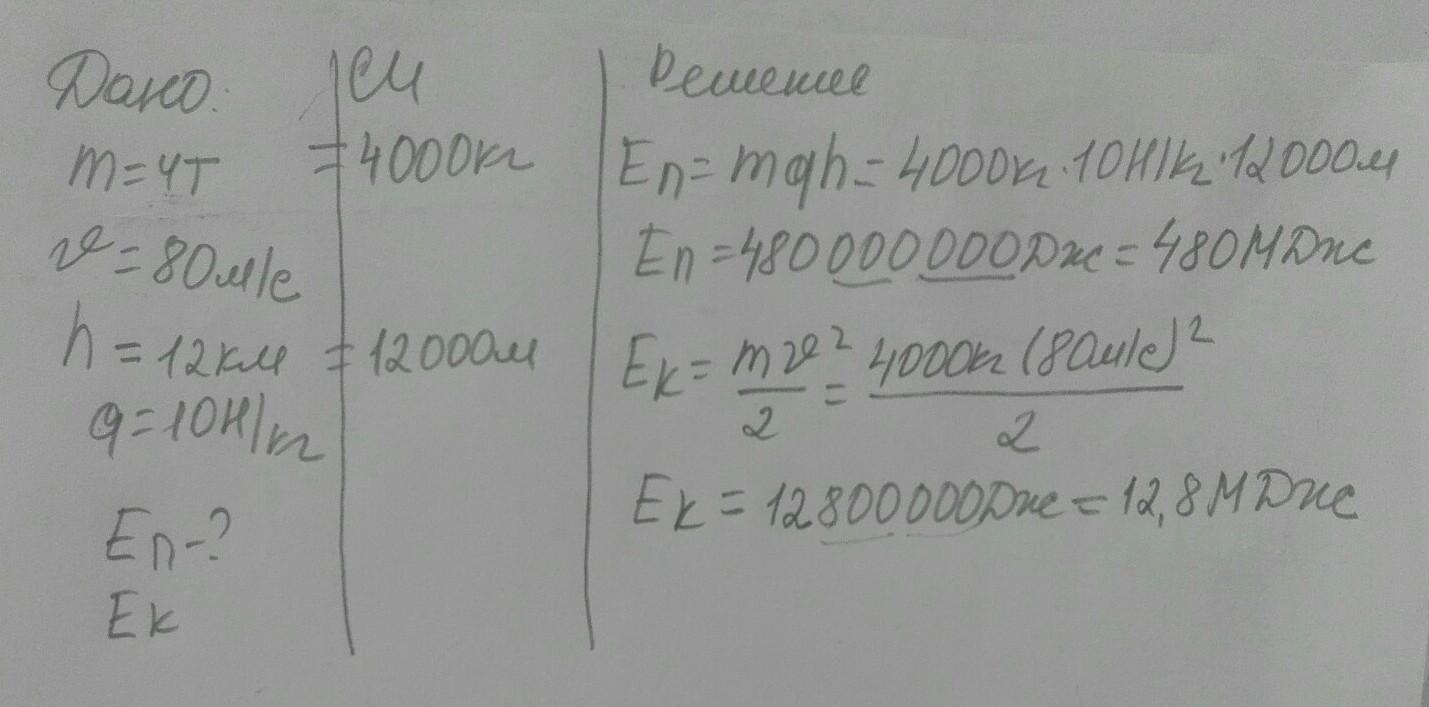 Дано: СИ Решение
m=4т =4000кг Eп=mgh=4000кг·10Н/кг·12000м
v=80м/с Eп=480000000Дж=480МДж
h=12км =12000м Eк=mv²/2=4000кг(80м/с)²/2
g=10Н/кг
Eк=12800000Дж=12,8МДж
Eп-?
Eк